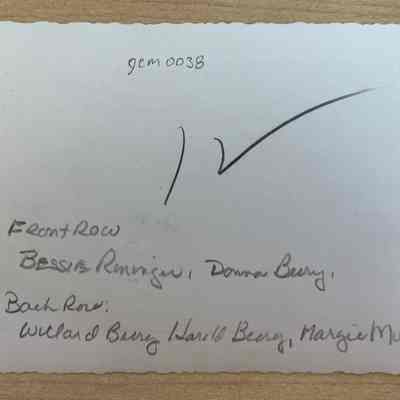 gcm0038
Front Row
Bessie Reninger, Donna Beery,
Back Row:
Willard Beery Harold Beery, Margie